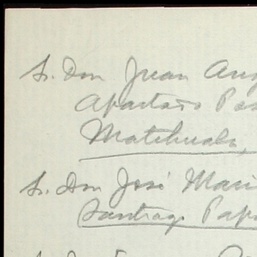 Sr. Don Juan Ang
Apartado Pos
Matehuala,
Sr. Don José Marí
Santiago Papa